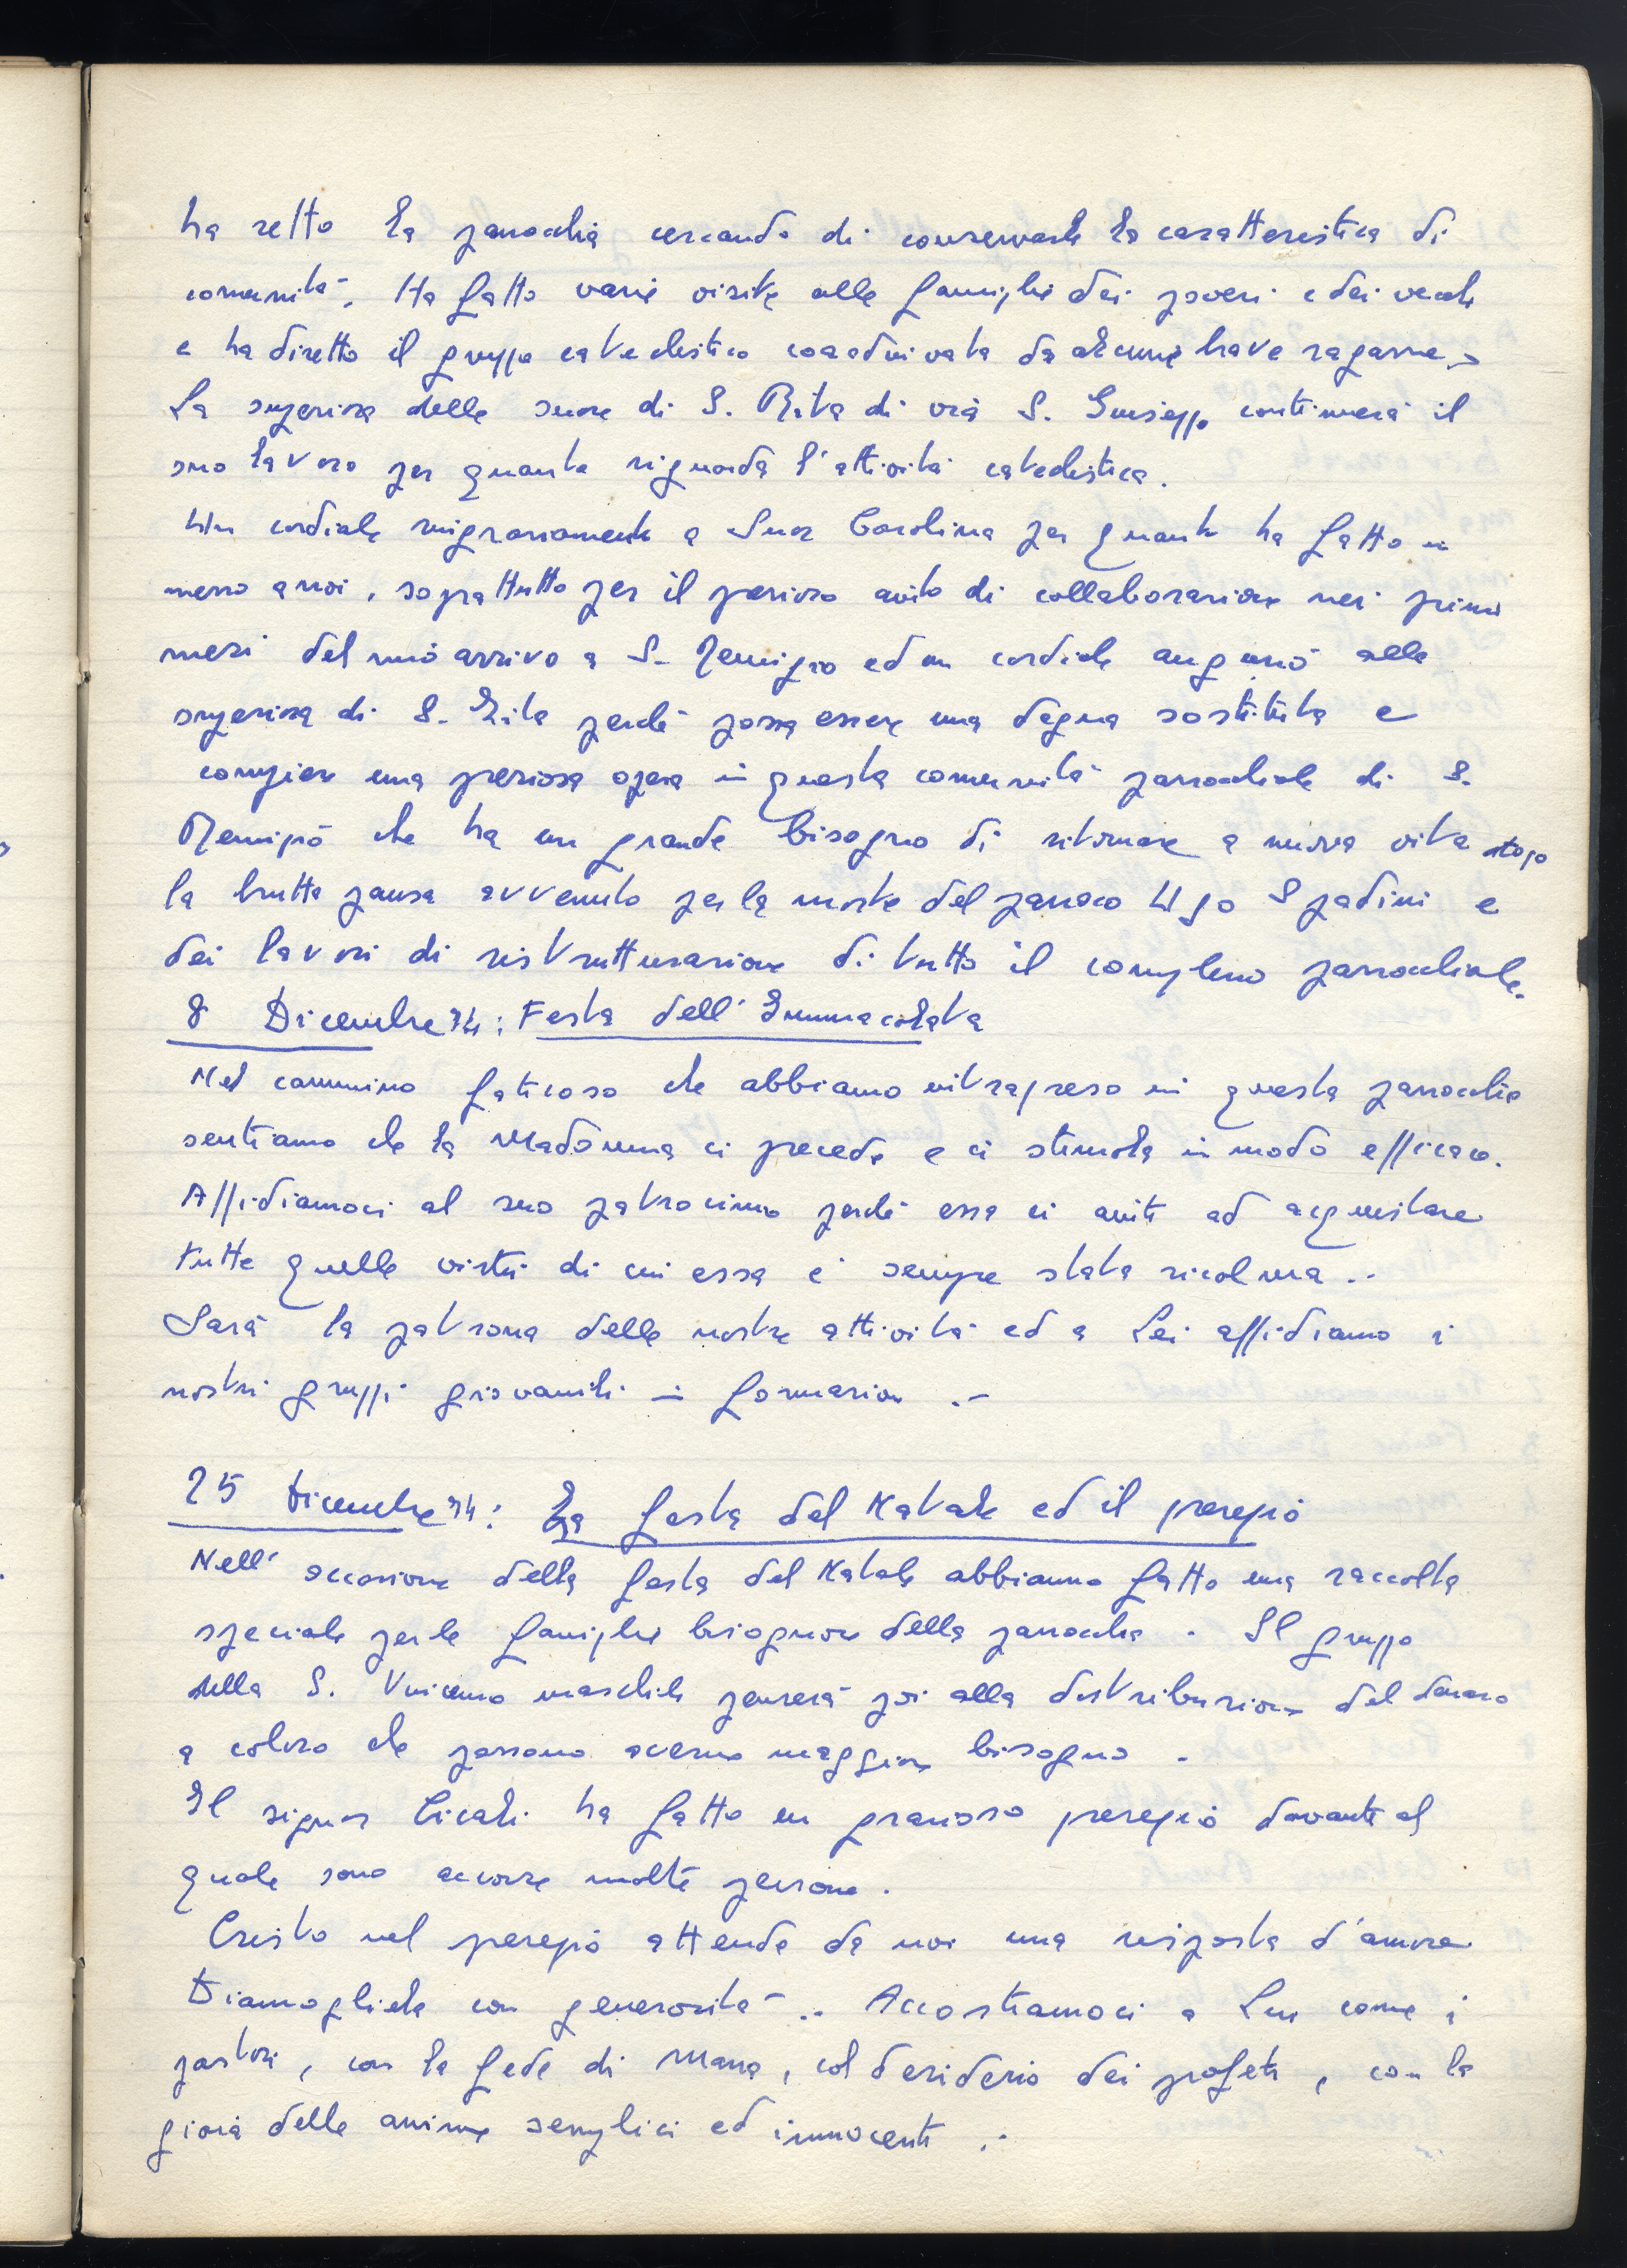 ha retto la parrocchia cercando di conservarle la caratteristica di
comunità. Ha fatto varie visite alle famiglie dei poveri e dei vecchi
e ha diretto il gruppo catechistico coadiuvata da alcune brave ragazze.
La superiora delle suore di S. Rita di via S. Giuseppe continuerà il
suo lavoro per quanto riguarda l'attività catechistica.
Un cordiale ringraziamento a Suor Carolina per quanto ha fatto in
mezzo a noi, soprattutto per il prezioso aiuto di collaborazione nei primi
mesi del mio arrivo a S. Remigio ed un cordiale augurio alla
superiora di S. Rita perché possa essere una degna sostituta e
compiere una preziosa opera in questa comunità parrocchiale di S.
Remigio che ha un grande bisogno di ritornare a nuova vita dopo
la brutta pausa avvenuta per la morte del parroco Ugo Spadini e
dei lavori di ristrutturazione di tutto il complesso parrocchiale.
8 Dicembre 74: Festa dell'Immacolata
Nel cammino faticoso che abbiamo intrapreso in questa parrocchia
sentiamo che la Madonna ci precede e ci stimola in modo efficace.
Affidiamoci al suo patrocinio perché essa ci aiuti ad acquistare
tutte quelle virtù di cui essa è sempre stata ricolma..
Sarà la patrona delle nostre attività ed a Lei affidiamo i
nostri gruppi giovanili in formazione .-
25 Dicembre 74: La festa del Natale ed il presepio
Nell'occasione della festa del Natale abbiamo fatto una raccolta
speciale per le famiglie bisognose della parrocchia. Il gruppo
della S. Vincenzo maschile penserà poi alla distribuzione del denaro
a coloro che possono averne maggiore bisogno.
Il signor Cicali ha fatto un grazioso presepio davanti al
quale sono accorse molte persone.
Cristo nel presepio attende da noi una risposta d'amore
Diamogliela con generosità.. Accostiamoci a Lui come i
pastori, con la fede di Maria, col desiderio dei profeti, con la
gioia delle anime semplici ed innocenti .-